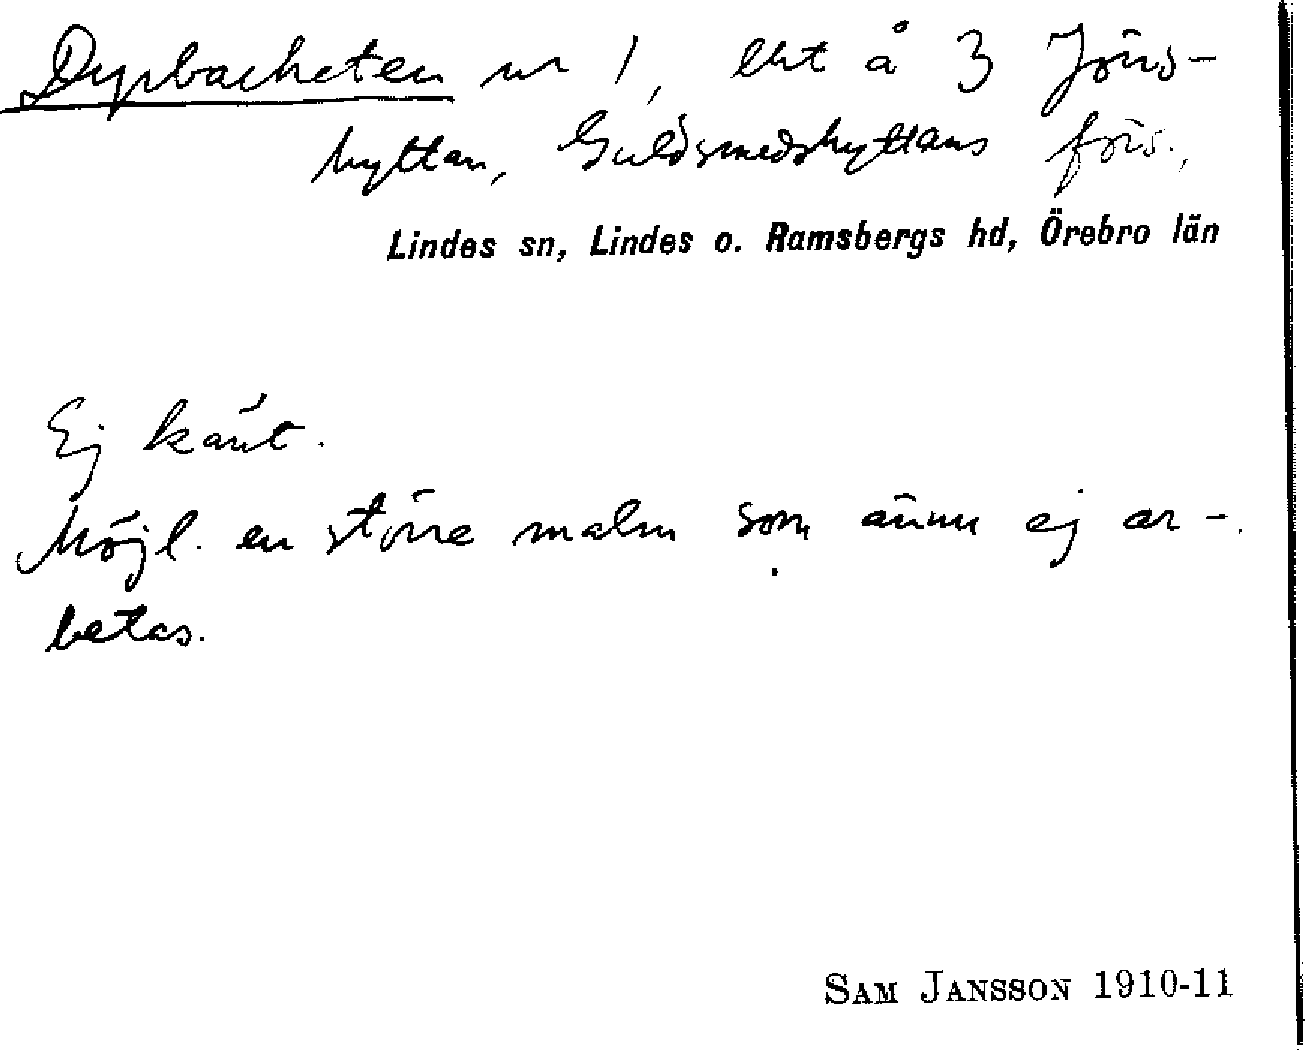 Dyrbarheten nr 1, lht å 3 Jöns-
hyttan, Guldsmedshyttans förs.,
Lindes sn, Lindes o. Ramsbergs hd, Örebro län
Ej känt.
Möjl. en större malm som ännu ej ar-
betas.
SAM JANSSON 1910-11